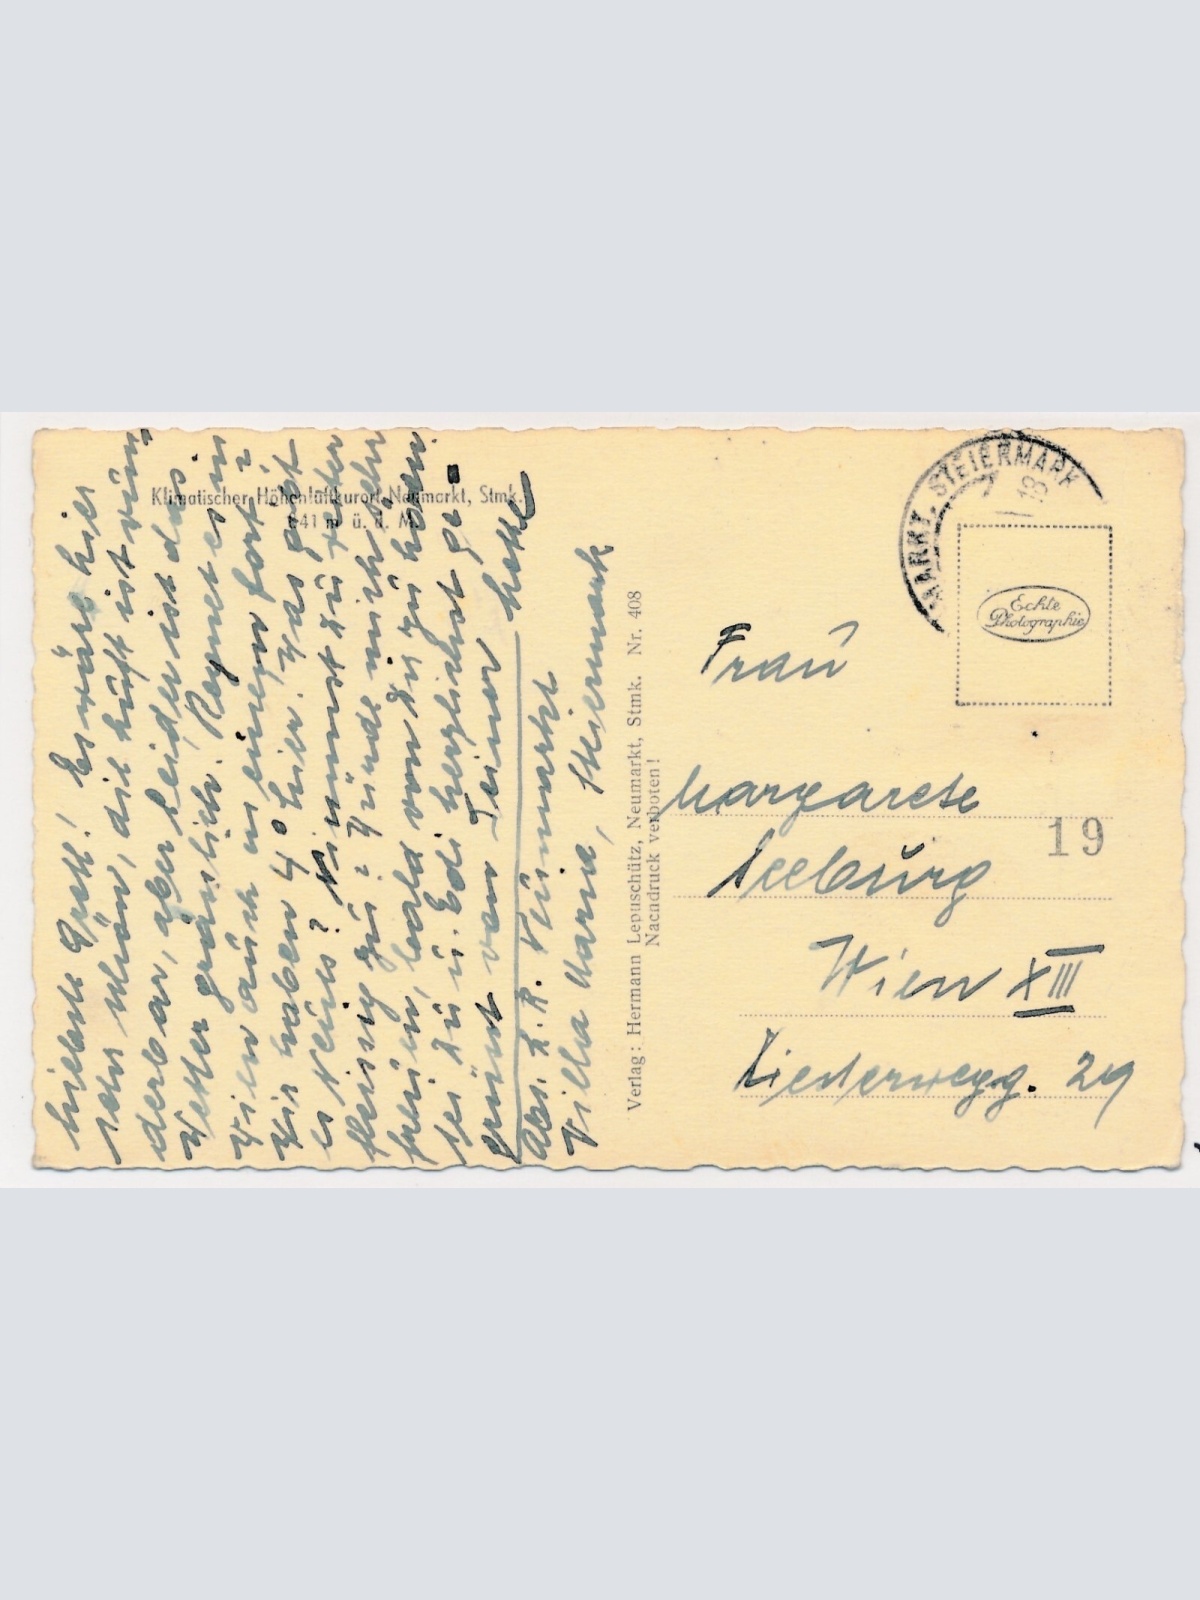 Klimatischer Höhenluftkurort Neumarkt, Stmk.
841 m ü. d. M.
Liebste Gretl! Es wäre hier
sehr schön, die Luft ist wun
derbar, aber leider ist das
Wetter grässlich. Regnet es in
Wien auch in einem fort?
Wir haben 4° hier. Was gibt
es Neues? Nimmst Du weiter
fleissig zu? Würde mich sehr
freuen, bald von Dir zu hören.
Sei Du u. Edi herzlichst ge-
grüsst von Deiner
Abs. L. R. Neumarkt
Villa Maria, Steiermark
Verlag: Hermann Lepuschütz, Neumarkt, Stmk. Nr. 408
Nachdruck verboten!
MARKT, STEIERMARK
18
Echte
Photographie
Frau
Margarete
Seeburg
19
Wien XIII
29